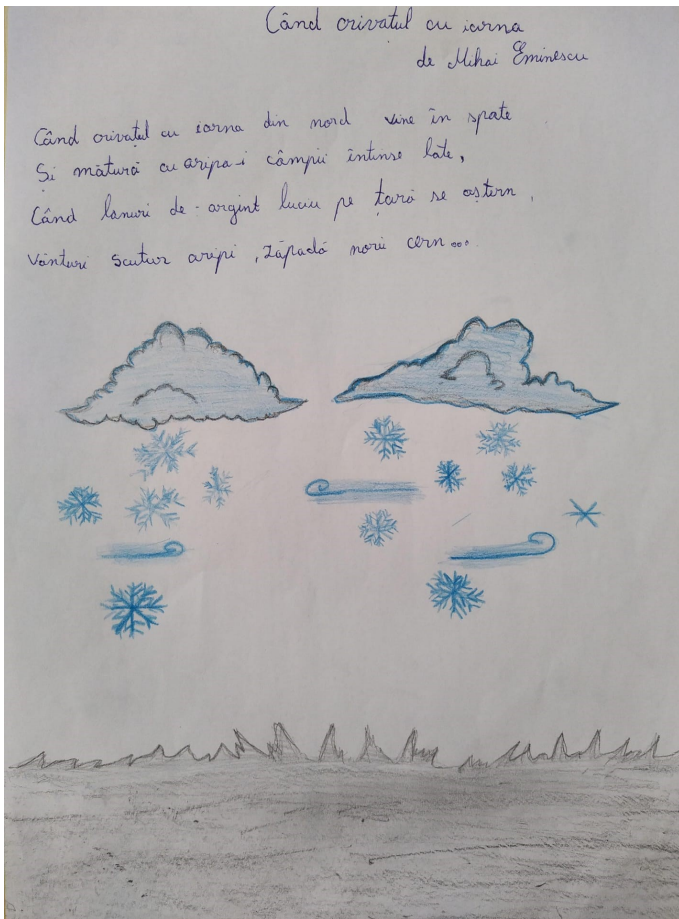 Când crivatul cu iarna
de Mihai Eminescu
Când crivațul cu iarna din nord vine în spate
Și mătură cu aripa-i câmpii întinse late,
Când lanuri de-argint luciu pe țară se aștern,
Vânturi scutur aripi, zăpadă norii cern...